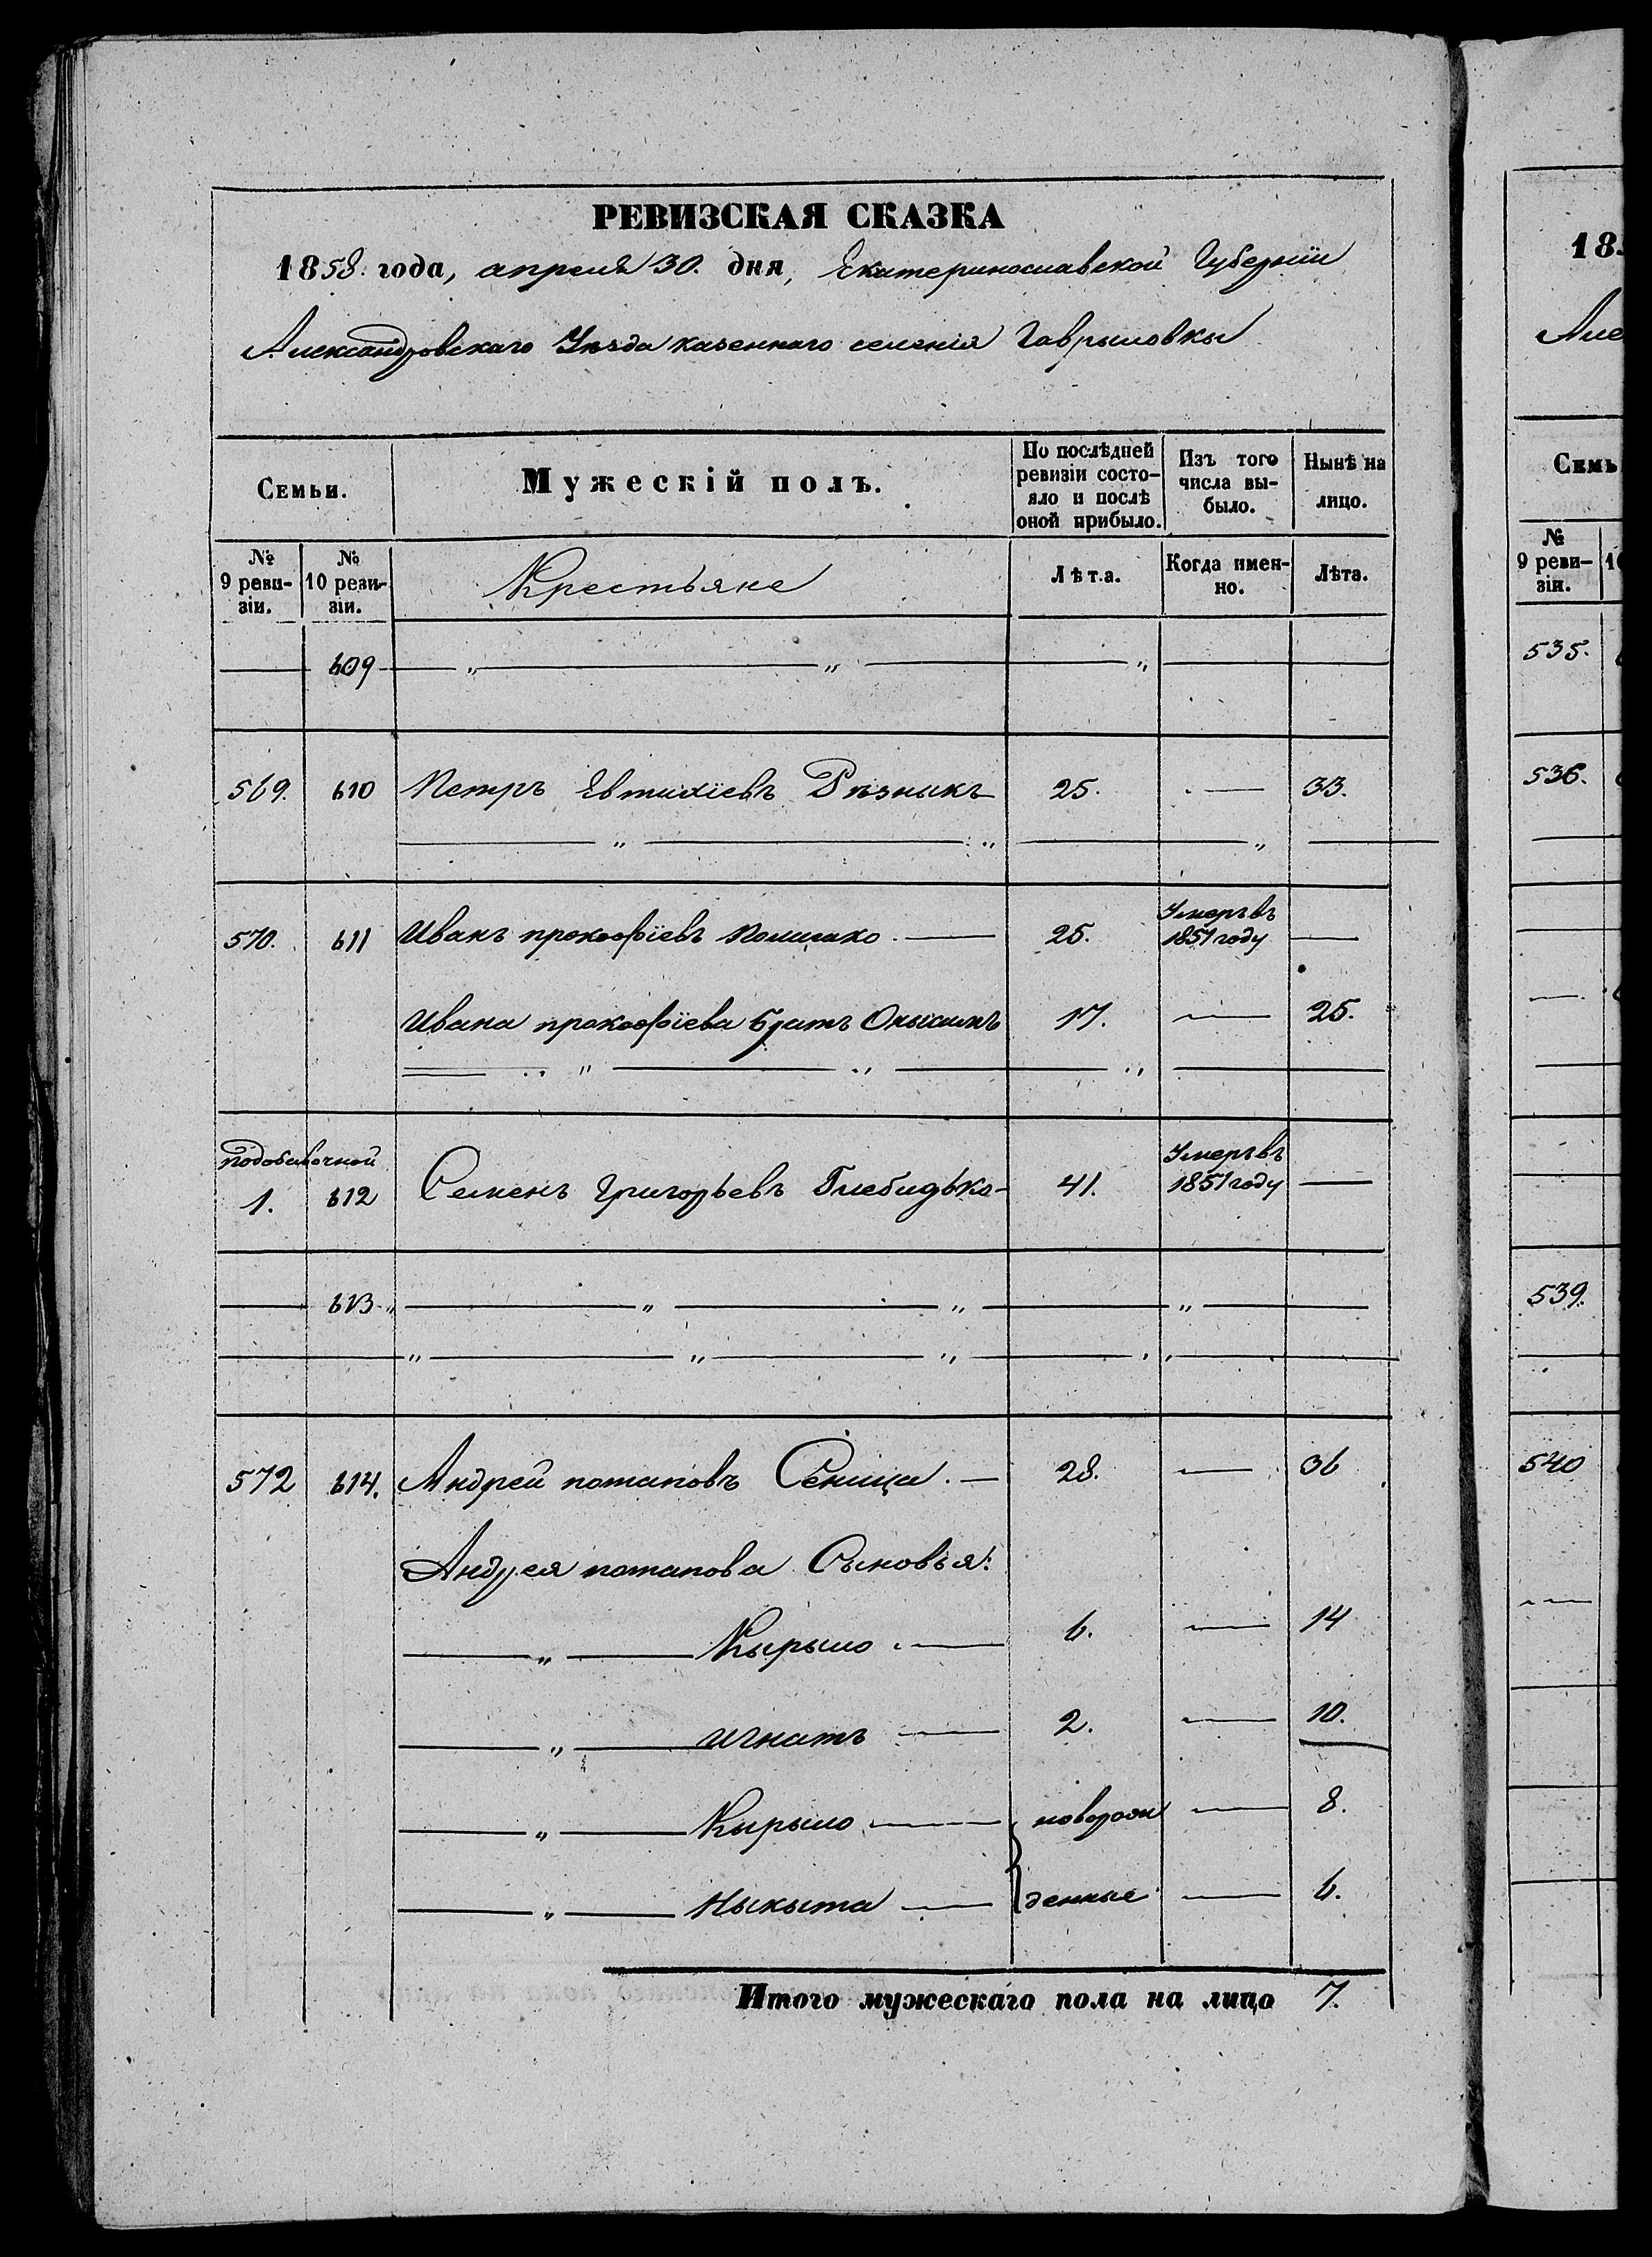 РЕВИЗСКАЯ СКАЗКА
1858. года, апреля 30. дня, Екатеринославской Губерніи
Александровскаго Уѣзда казеннаго селенія Гаврыловкы
Семьи.
Мужескій полъ.
По послѣдней ревизіи состо-
яло и послѣ
оной прибыло.
Изъ того
числа вы-
было.
Нынѣ на
лицо.
№
9 реви-
зіи.
№
10 реви-
зіи.
Крестьяне
Лѣта.
Когда имен-
но.
Лѣта.
609 „ „ „
569. 610 Петръ Евтихіевъ Рѣзныкъ 25. — 33.
570. 611 Иванъ прокофіевъ 25. Умеръ въ 1851 году —
Ивана прокофіева братъ Онысымъ 17. — 25.
подобавочной
1. 612 Семенъ Григорьевъ Глебидько 41. Умеръ въ 1851 году —
613 „ „ „
572 614. Андрей потаповъ Сеница. — 28. — 36
Андрея потапова Сыновья:
„ Кырыло 6. — 14
„ игнатъ 2. — 10.
„ Кырыло новорож — 8.
„ Ныкыта денные — 6.
Итого мужескаго пола на лицо 7.
18
Але
Семь
№
9 реви-
зіи.
535.
536.
539.
540